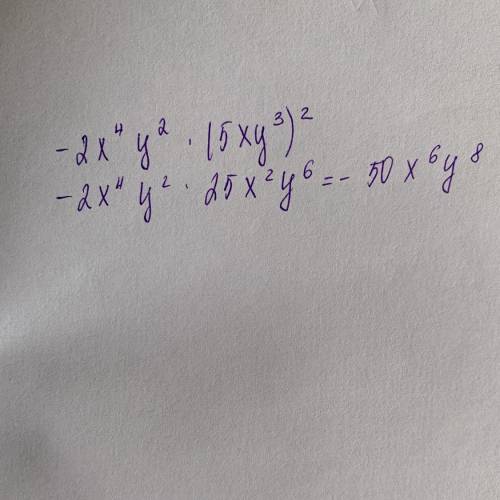 -2x⁴y² · (5xy³)²
-2x⁴y² · 25x²y⁶ = - 50x⁶y⁸